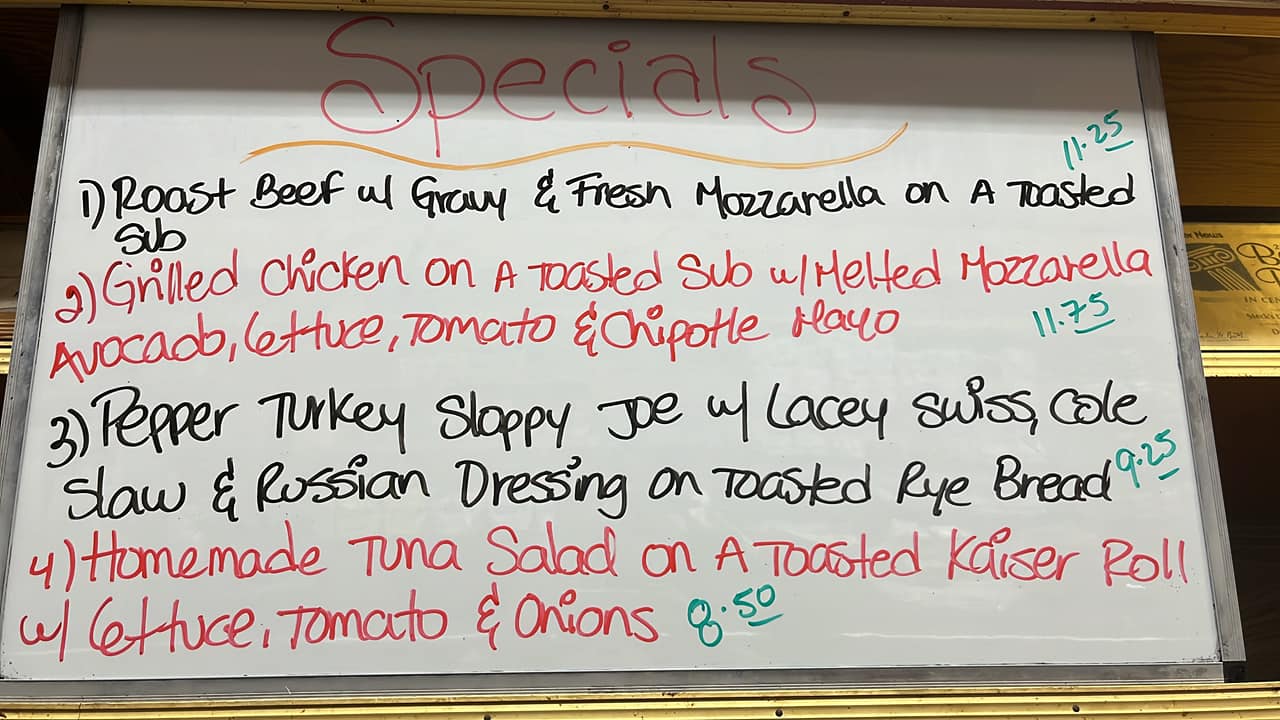 Specials
11.25
1) Roast Beef w/ Gravy & Fresh Mozzarella on A Toasted
Sub
2) Grilled Chicken on A Toasted Sub w/ Melted Mozzarella
Avocado, Lettuce, Tomato & Chipotle Mayo
11.75
3) Pepper Turkey Sloppy Joe w/ Lacey Swiss, Cole
Slaw & Russian Dressing on Toasted Rye Bread 9.25
4) Homemade Tuna Salad on A Toasted Kaiser Roll
w/ Lettuce, Tomato & Onions 8.50
News